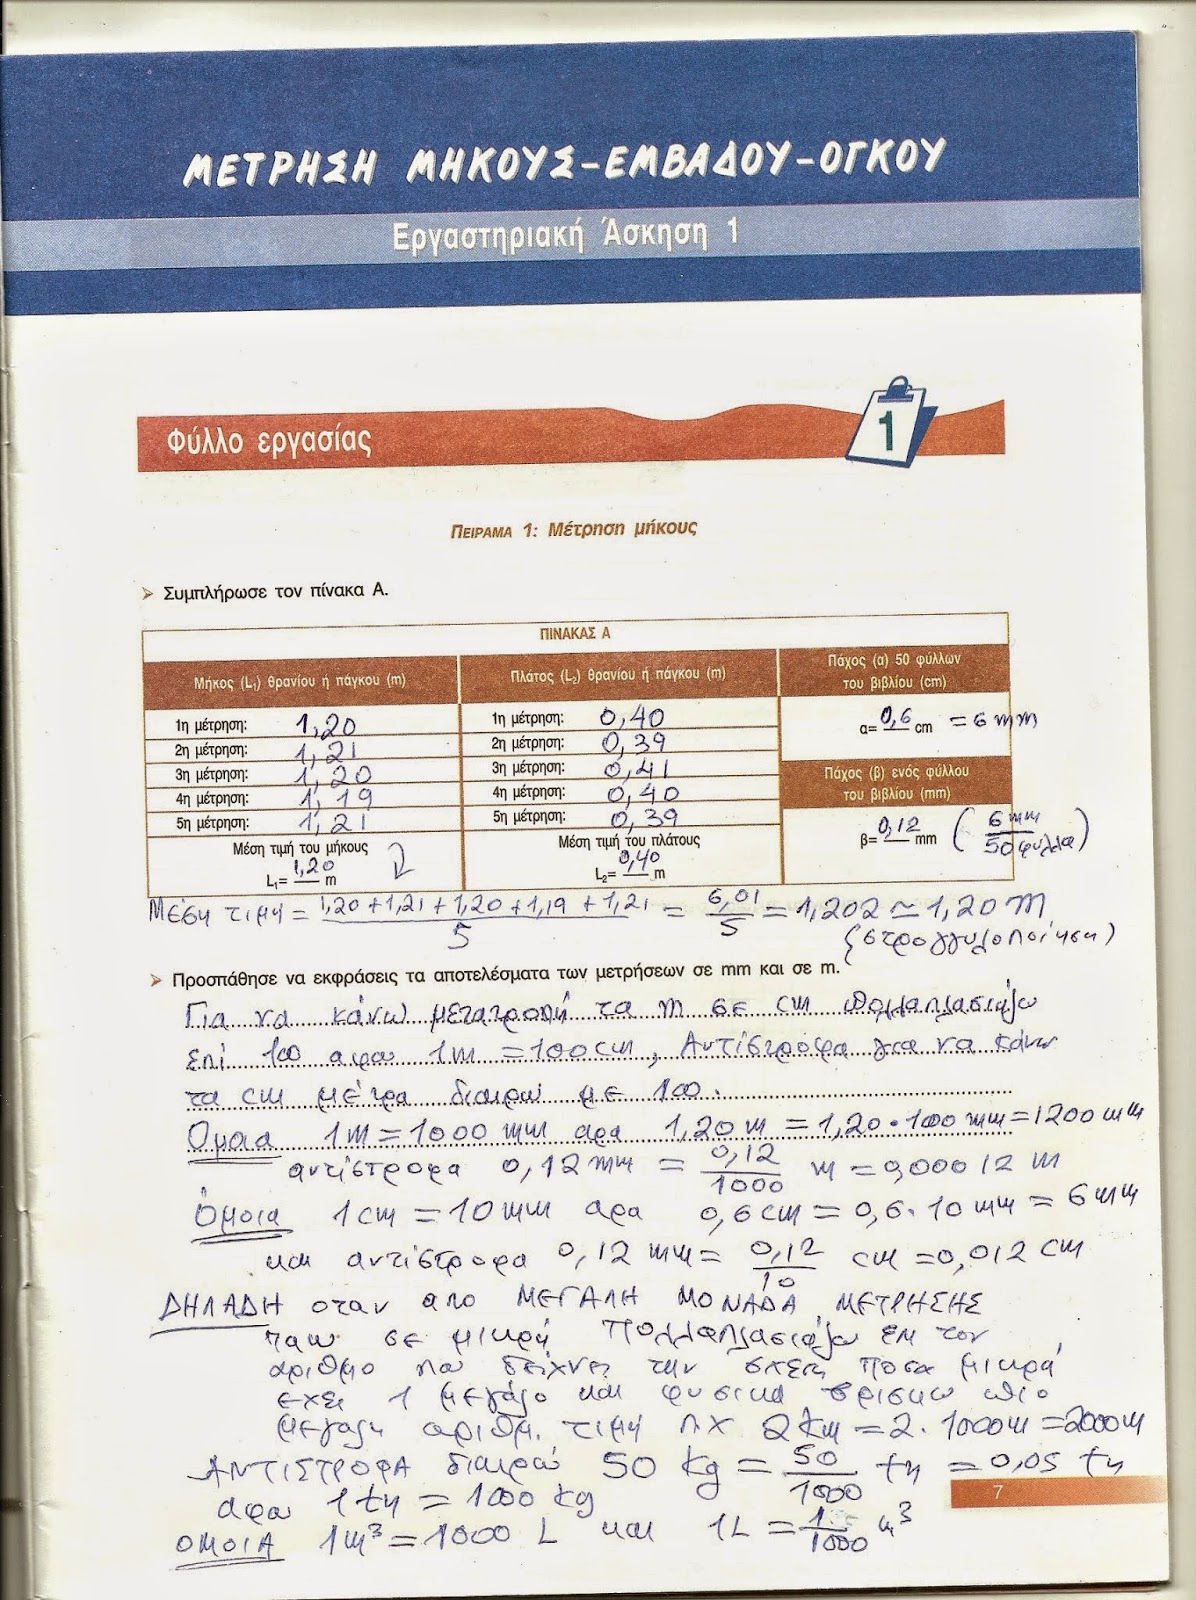 ΜΕΤΡΗΣΗ ΜΗΚΟΥΣ-ΕΜΒΑΔΟΥ-ΟΓΚΟΥ
Εργαστηριακή Άσκηση 1
Φύλλο εργασίας
1
ΠΕΙΡΑΜΑ 1: Μέτρηση μήκους
➢ Συμπλήρωσε τον πίνακα Α.
ΠΙΝΑΚΑΣ Α
Μήκος (L₁) θρανίου ή πάγκου (m)
1η μέτρηση: 1,20
2η μέτρηση: 1,21
3η μέτρηση: 1,20
4η μέτρηση: 1,19
5η μέτρηση: 1,21
Μέση τιμή του μήκους
L₁= 1,20 m
Πλάτος (L₂) θρανίου ή πάγκου (m)
1η μέτρηση: 0,40
2η μέτρηση: 0,39
3η μέτρηση: 0,41
4η μέτρηση: 0,40
5η μέτρηση: 0,39
Μέση τιμή του πλάτους
L₂= 0,40 m
Πάχος (α) 50 φύλλων
του βιβλίου (cm)
α= 0,6 cm = 6 mm
Πάχος (β) ενός φύλλου
του βιβλίου (mm)
β= 0,12 mm (6 mm / 50 φύλλα)
Μέση τιμή = 1,20+1,21+1,20+1,19+1,21 / 5 = 6,01 / 5 = 1,202 ≃ 1,20 m
(στρογγυλοποίηση)
➢ Προσπάθησε να εκφράσεις τα αποτελέσματα των μετρήσεων σε mm και σε m.
Για να κάνω μετατροπή τα m σε cm πολλαπλασιάζω
επί 100 αφου 1m = 100cm, Αντίστροφα για να κάνω
τα cm μέτρα διαιρώ με 100.
Ομοια 1m = 1000 mm αρα 1,20 m = 1,20 • 1000 mm = 1200 mm
αντίστροφα 0,12 mm = 0,12 / 1000 m = 0,00012 m
Όμοια 1cm = 10 mm αρα 0,6 cm = 0,6 • 10 mm = 6 mm
και αντίστροφα 0,12 mm = 0,12 / 10 cm = 0,012 cm
ΔΗΛΑΔΗ οταν απο ΜΕΓΑΛΗ ΜΟΝΑΔΑ ΜΕΤΡΗΣΗΣ
παω σε μικρή πολλαπλασιάζω επι τον
αριθμο που δείχνει την σχεση ποσα μικρά
εχει 1 μεγάλο και φυσικα βρισκω πιο
μεγαλη αριθμ. τιμή πχ 2 km = 2 • 1000 m = 2000 m
ΑΝΤΙΣΤΡΟΦΑ διαιρώ 50 kg = 50 / 1000 tn = 0,05 tn
αφου 1 tn = 1000 kg
ΟΜΟΙΑ 1m³ = 1000 L και 1L = 1 / 1000 m³
7